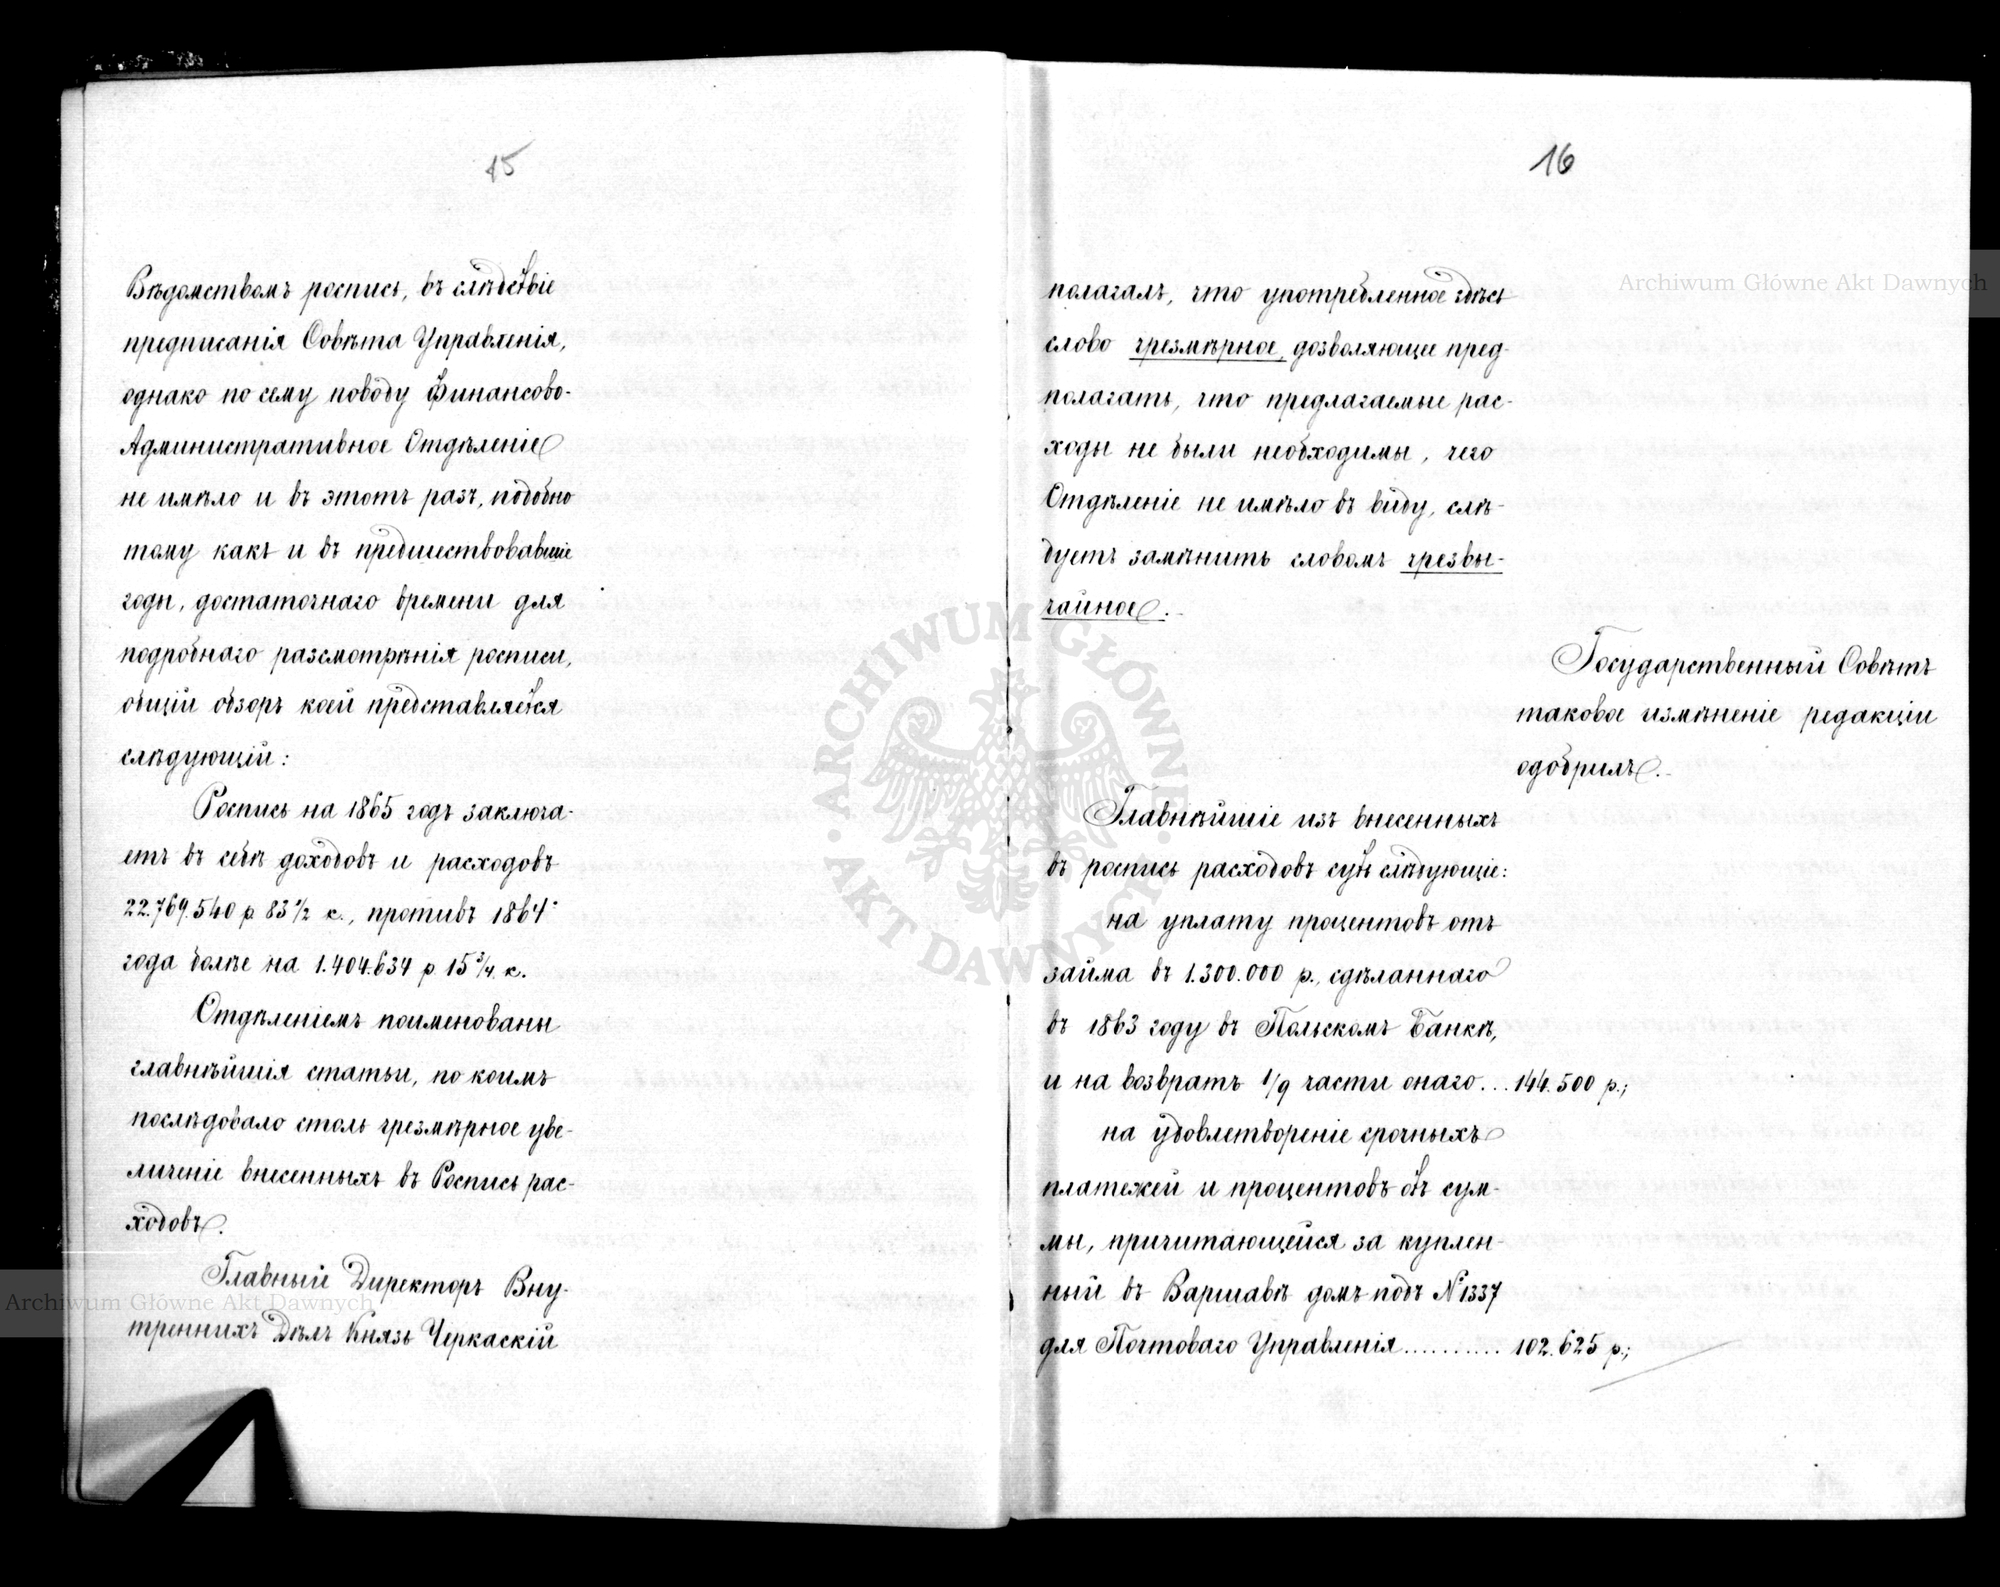 15
Вѣдомствомъ роспись, въ слѣдствіе
предписанія Совѣта Управленія,
однако по сему поводу Финансово-
Административное Отдѣленіе
не имѣло и въ этотъ разъ, подобно
тому какъ и въ предшествовавшіе
годы, достаточнаго времени для
подробнаго разсмотрѣнія росписи,
общій обзоръ коей представляется
слѣдующій:
Роспись на 1865 годъ заключа-
етъ въ себѣ доходовъ и расходовъ
22.769.540 р 83 1/2 к., противъ 1864
года болѣе на 1.404.634 р 15 3/4 к.
Отдѣленіемъ поименованы
главнѣйшія статьи, по коимъ
послѣдовало столь чрезмѣрное уве-
личеніе внесенныхъ въ Роспись рас-
ходовъ.
Главный Директоръ Вну-
треннихъ Дѣлъ Князь Черкаскій
16
полагалъ, что употребленное здѣсь
слово чрезмѣрное, дозволяющее пред-
полагать, что предлагаемые рас-
ходы не были необходимы, чего
Отдѣленіе не имѣло въ виду, слѣ-
дуетъ замѣнить словомъ чрезвы-
чайное.
Государственный Совѣтъ
таковое измѣненіе редакціи
одобрилъ.
Главнѣйшіе изъ внесенныхъ
въ роспись расходовъ суть слѣдующіе:
на уплату процентовъ отъ
займа въ 1.300.000 р., сдѣланнаго
въ 1863 году въ Польскомъ Банкѣ,
и на возвратъ 1/9 части онаго... 144.500 р.;
на удовлетвореніе срочныхъ
платежей и процентовъ отъ сум-
мы, причитающейся за куплен-
ный въ Варшавѣ домъ подъ № 1337
для Почтоваго Управленія.......... 102.625 р.;
Archiwum Główne Akt Dawnych
Archiwum Główne Akt Dawnych
ARCHIWUM GŁÓWNE · AKT DAWNYCH ·